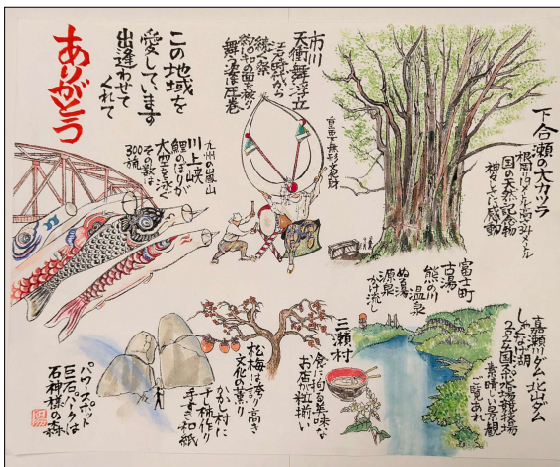 下合瀬の大カツラ
メートル高さ34メートル
国の天然記念物
神々しさに感動
市川
天衝舞浮立
江戸時代から
続く祭
の面を被り
舞う姿は圧巻
重要無形文化財
この地域を
愛しています
出逢わせて
くれて
ありがとう
九州の嵐山
川上峡
鯉のぼりが
大空を泳ぐ
その数は
300流
富士町
古湯
熊の川
温泉
ぬる湯
源泉
かけ流し
嘉瀬川ダム 北山ダム
しゃくなげ湖
競技場
素晴しい景観
ご覧あれ
三瀬村
食に拘る美味な
お店が粒揃い
松梅は誇り高き
文化の薫り
かかし村に
干し柿作り
手すき和紙
パワースポット
巨石パークは
石神様の森